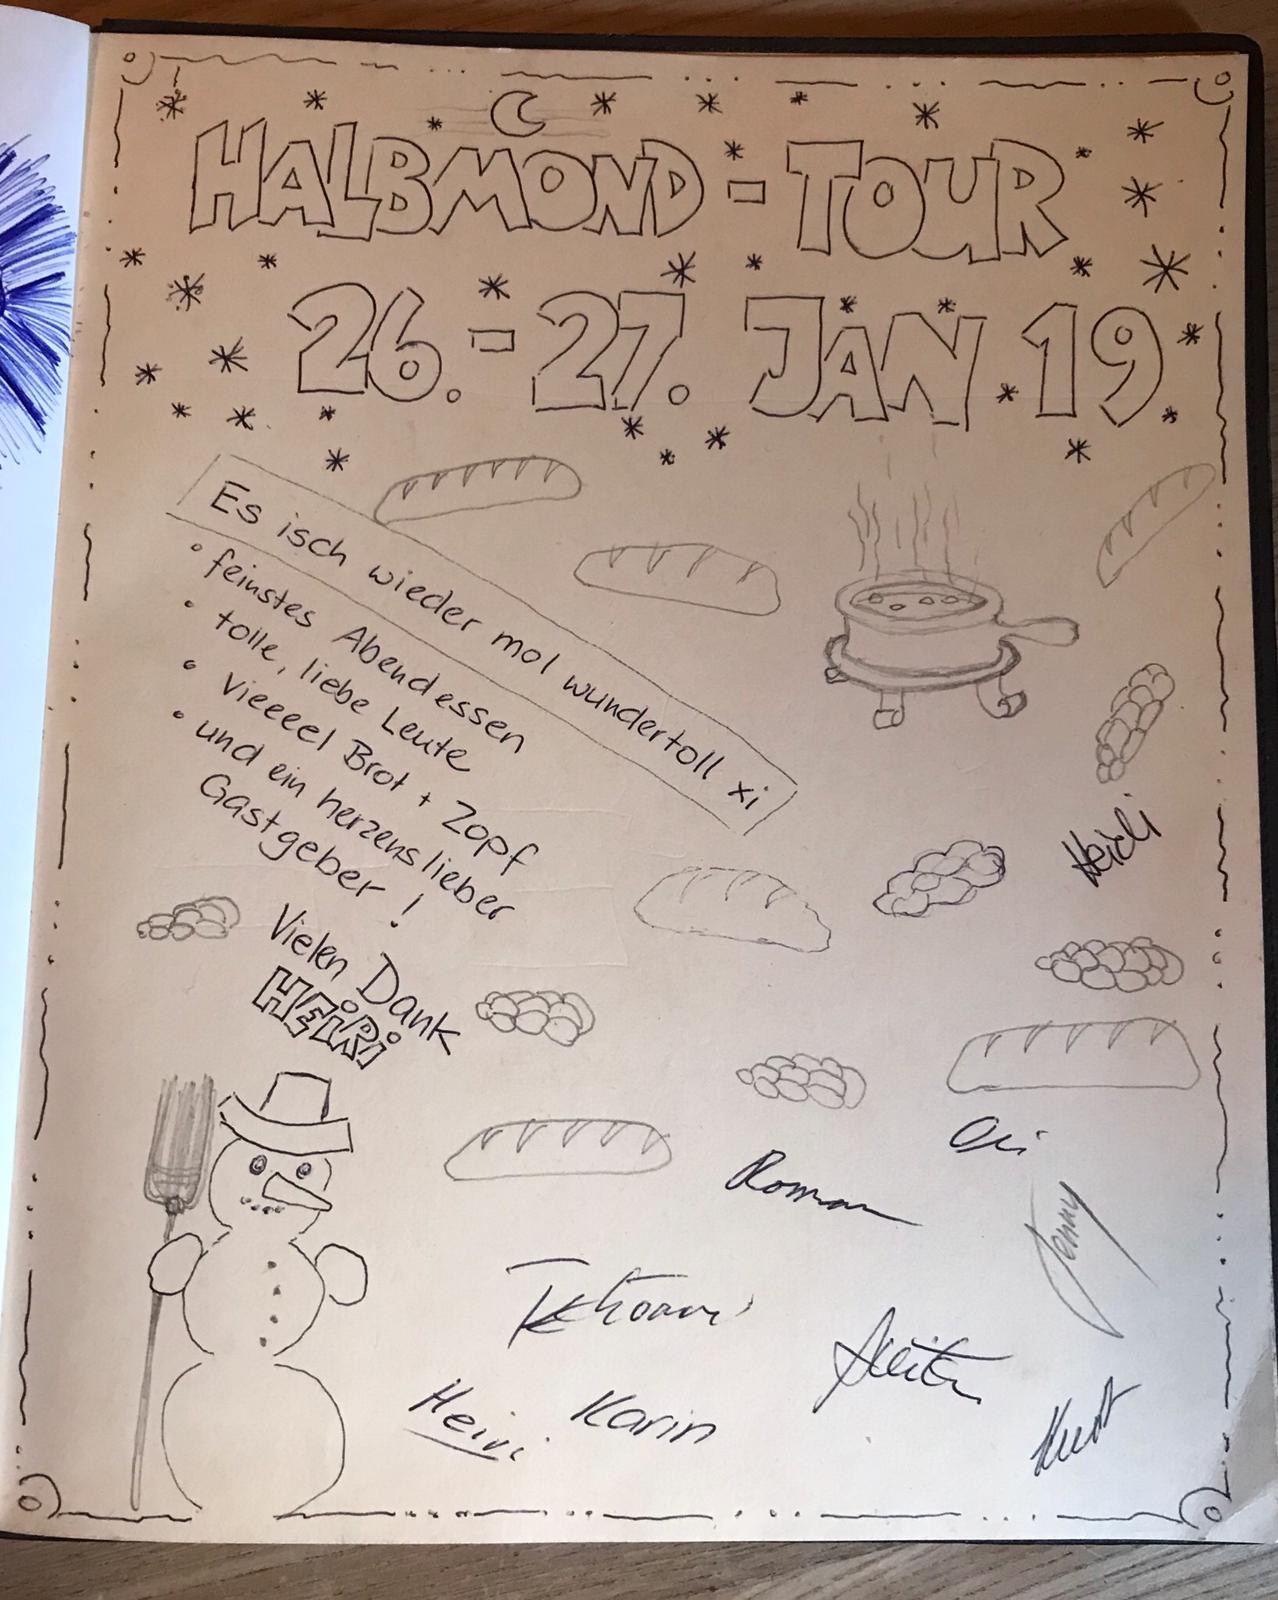 HALBMOND - TOUR
26. - 27. JAN 19
Es isch wieder mol wundertoll xi
• feinstes Abendessen
• tolle, liebe Leute
• vieeeel Brot + Zopf
• und ein herzenslieber
Gastgeber !
Vielen Dank
HEiRi
Heidi
Roman
Jenny
Heiri
Karin
Kurt